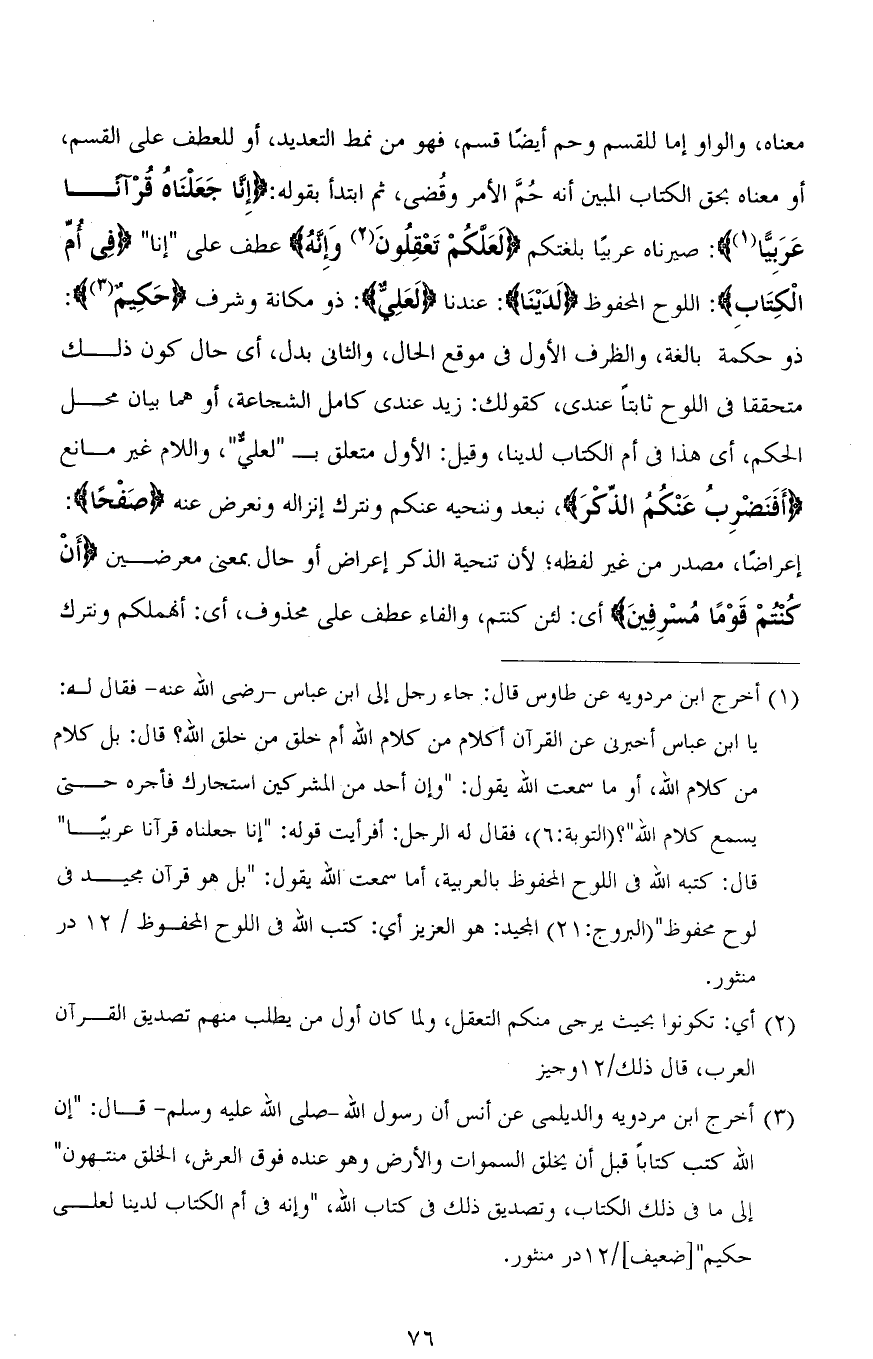 معناه، والواو إما للقسم وحم أيضًا قسم، فهو من نمط التعديد، أو للعطف على القسم،
أو معناه بحق الكتاب المبين أنه حُمَّ الأمر وقُضى، ثم ابتدأ بقوله:﴿إِنَّا جَعَلْنَاهُ قُرْآنًا
عَرَبِيًّا(١)﴾: صيرناه عربيًا بلغتكم ﴿لَعَلَّكُمْ تَعْقِلُونَ(٢) وَإِنَّهُ﴾ عطف على "إنا" ﴿فِي أُمِّ
الْكِتَابِ﴾: اللوح المحفوظ ﴿لَدَيْنَا﴾: عندنا ﴿لَعَلِيٌّ﴾: ذو مكانة وشرف ﴿حَكِيمٌ(٣)﴾:
ذو حكمة بالغة، والظرف الأول فى موقع الحال، والثانى بدل، أى حال كون ذلك
متحققا فى اللوح ثابتاً عندى، كقولك: زيد عندى كامل الشجاعة، أو هما بيان محل
الحكم، أى هذا فى أم الكتاب لدينا، وقيل: الأول متعلق بـ "لعليٌّ"، واللام غير مانع
﴿أَفَنَضْرِبُ عَنْكُمُ الذِّكْرَ﴾، نبعد وننحيه عنكم ونترك إنزاله ونعرض عنه ﴿صَفْحًا﴾:
إعراضًا، مصدر من غير لفظه؛ لأن تنحية الذكر إعراض أو حال بمعنى معرضين ﴿أَنْ
كُنْتُمْ قَوْمًا مُسْرِفِينَ﴾ أى: لئن كنتم، والفاء عطف على محذوف، أى: أنهملكم ونترك
(١) أخرج ابن مردويه عن طاوس قال: جاء رجل إلى ابن عباس -رضى الله عنه- فقال له:
يا ابن عباس أخبرنى عن القرآن أكلام من كلام الله أم خلق من خلق الله؟ قال: بل كلام
من كلام الله، أو ما سمعت الله يقول: "وإن أحد من المشركين استجارك فأجره حتى
يسمع كلام الله"؟(التوبة:٦)، فقال له الرجل: أفرأيت قوله: "إنا جعلناه قرآنا عربيًا"
قال: كتبه الله فى اللوح المحفوظ بالعربية، أما سمعت الله يقول: "بل هو قرآن مجيد فى
لوح محفوظ"(البروج:٢١) المجيد: هو العزيز أي: كتب الله فى اللوح المحفوظ / ١٢ در
منثور.
(٢) أي: تكونوا بحيث يرجى منكم التعقل، ولما كان أول من يطلب منهم تصديق القرآن
العرب، قال ذلك/١٢وجيز
(٣) أخرج ابن مردويه والديلمى عن أنس أن رسول الله -صلى الله عليه وسلم- قال: "إن
الله كتب كتاباً قبل أن يخلق السموات والأرض وهو عنده فوق العرش، الخلق منتهون"
إلى ما فى ذلك الكتاب، وتصديق ذلك فى كتاب الله، "وإنه فى أم الكتاب لدينا لعلى
حكيم"[ضعيف]/١٢در منثور.
٧٦